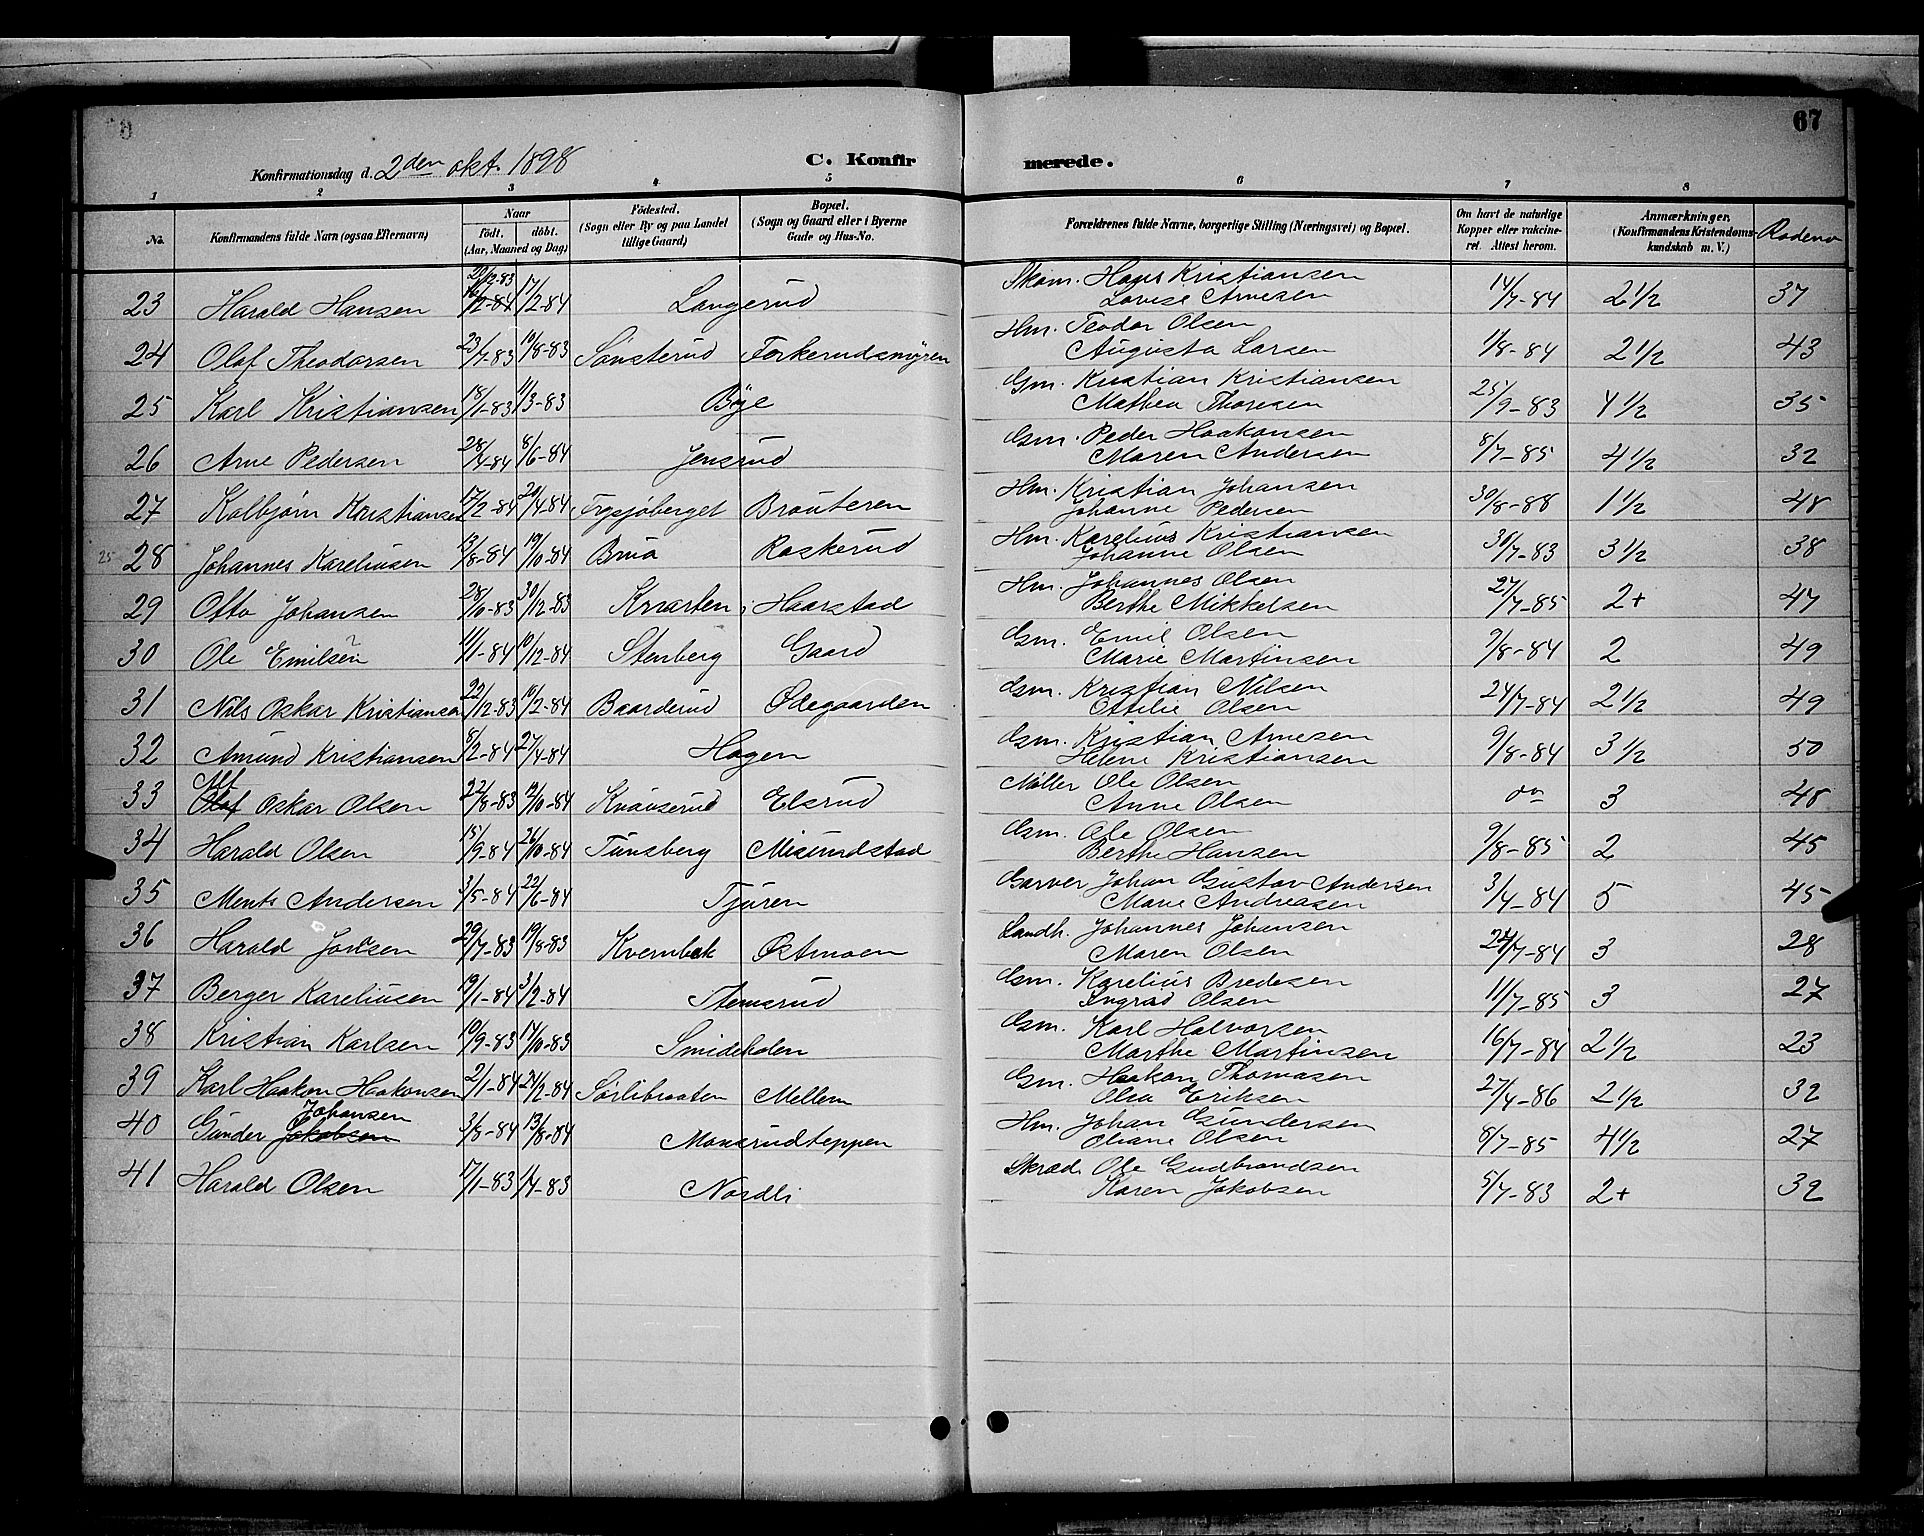 67
Konfirmationsdag d. 2den okt. 1898 C. Konfirmerede.
1 2 3 4 5 6 7 8
No. Konfirmandens fulde Navn (ogsaa Efternavn) Naar födt. döbt. (Aar, Maaned og Dag) Födested. (Sogn eller By og paa Landet tillige Gaard) Bopæl. (Sogn og Gaard eller i Byerne Gade og Hus-No. Forældrenes fulde Navne, borgerlige Stilling (Næringsvei) og Bopæl. Om havt de naturlige Kopper eller vakcineret. Attest herom. Anmærkninger. (Konfirmandens Kristendomskundskab m. V.) Rodeno
23 Harald Hansen 29/12-83 16/2-84 17/2-84 Langerud Skom. Hans Kristiansen 14/7-84 2 1/2 37
Lovise Arnesen
24 Olaf Theodorsen 23/7-83 19/8-83 Sönsterud Forkerudsmyren Hm. Teodor Olsen 1/8-84 2 1/2 43
Augusta Larsen
25 Karl Kristiansen 18/1-83 11/3-83 Bye Gm. Kristian Kristiansen 25/9-83 4 1/2 35
Mathea Thoresen
26 Arne Pedersen 28/4-84 8/6-84 Jensrud Gsm. Peder Haakonsen 8/7-85 4 1/2 32
Maren Andersen
27 Kolbjørn Kristiansen 17/2-84 20/4-84 Frysjøberget Brouteren Hm. Kristian Johansen 30/8-88 1 1/2 48
Johanne Pedersen
25 28 Johannes Kareliusen 13/8-84 19/10-84 Brua Roskerud Hm. Karelius Kristiansen 30/7-83 3 1/2 38
Johanne Olsen
29 Otto Johansen 28/10-83 30/12-83 Kvarten Haarstad Hm. Johannes Olsen 27/7-85 2+ 47
Berthe Mikkelsen
30 Ole Emilsen 11/1-84 19/12-84 Stenberg Gaard Gm. Emil Olsen 9/8-84 2 49
Marie Martinsen
31 Nils Oskar Kristiansen 22/12-83 10/2-84 Baarderud Ødegaarden Gsm. Kristian Nilsen 24/7-84 2 1/2 49
Ottilie Olsen
32 Amund Kristiansen 8/2-84 27/4-84 Hagen Gsm. Kristian Arnesen 9/8-84 3 1/2 50
Helene Kristiansen
33 Olaf Alf Oskar Olsen 22/8-83 12/10-84 Knauserud Elsrud Møller Ole Olsen do 3 48
Anne Olsen
34 Harald Olsen 15/9-84 26/10-84 Tunsberg Misundstad Gsm. Ole Olsen 9/8-85 2 45
Berthe Hansen
35 Ments Andersen 3/5-84 22/6-84 Tjuren Garver Johan Gustav Andersen 3/4-84 5 45
Marie Andreasen
36 Harald Johsen 29/7-83 19/8-83 Kvernbak Østmoen Landh. Johannes Johansen 24/7-84 3 28
Maren Olsen
37 Berger Kareliusen 19/1-84 3/2-84 Themsrud Gsm. Karelius Bredesen 11/7-85 3 27
Ingrid Olsen
38 Kristian Karlsen 19/9-83 14/10-83 Smideholen Gsm. Karl Halvorsen 16/7-84 2 1/2 23
Marthe Martinsen
39 Karl Haakon Haakonsen 2/1-84 24/2-84 Sørlibraaten Mellem Gm. Haakon Thomasen 27/4-86 2 1/2 32
Olea Eriksen
40 Gunder Jakobsen Johansen 3/8-84 13/8-84 Monsrudteppen Hm. Johan Gundersen 8/7-85 4 1/2 27
Oliane Olsen
41 Harald Olsen 17/1-83 1/4-83 Nordli Skræd. Ole Gudbrandsen 5/7-83 2+ 32
Karen Jakobsen